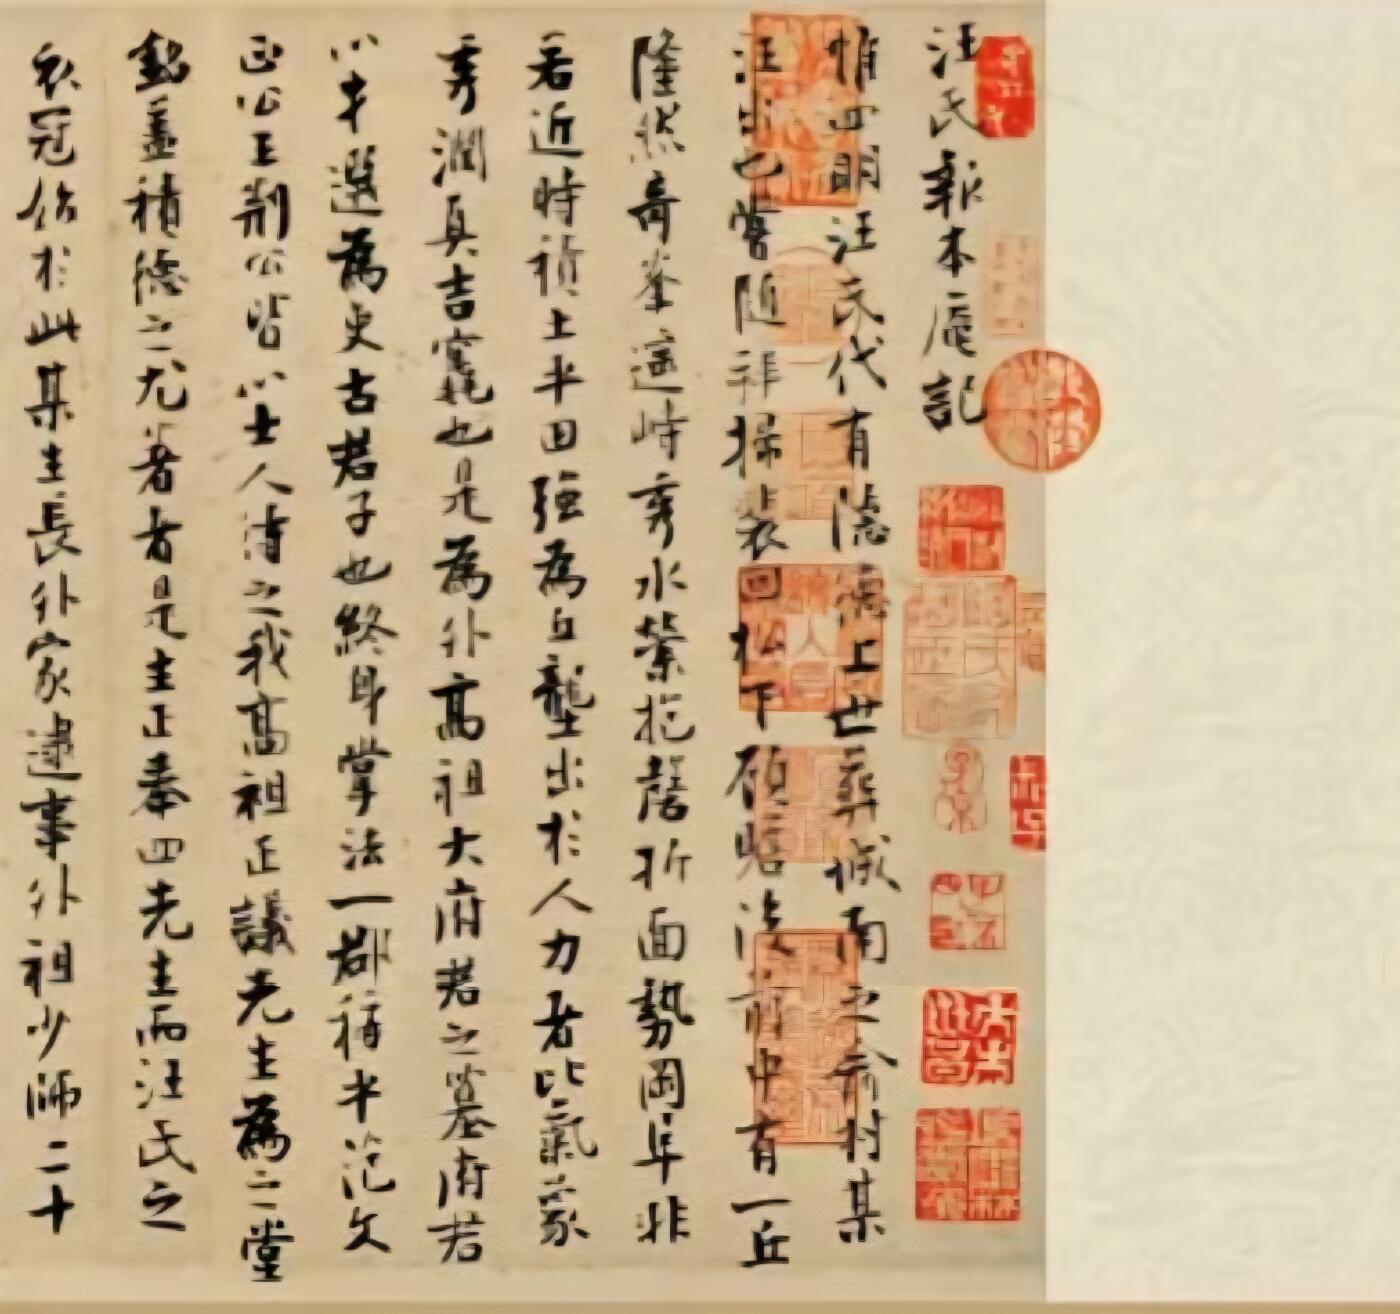 汪氏報本庵記
惟四明汪氏代有隱德上世葬城南之俞村某
汪出也嘗隨拜掃裴回松下顧瞻法前中有一丘
隆然奇峯遠峙秀水縈抱磬折面勢岡阜非
若近時積土半田強為丘壟出於人力者比氣象
秀潤真吉竁也是為外高祖大府君之墓府君
以才選為吏古君子也終身掌法一郡稱平范文
正公王荊公皆以士人待之我高祖正議先生為之堂
銘蓋積德之尤著者是生正奉四先生而汪氏之
衣冠仿於此某生長外家逮事外祖少師二十